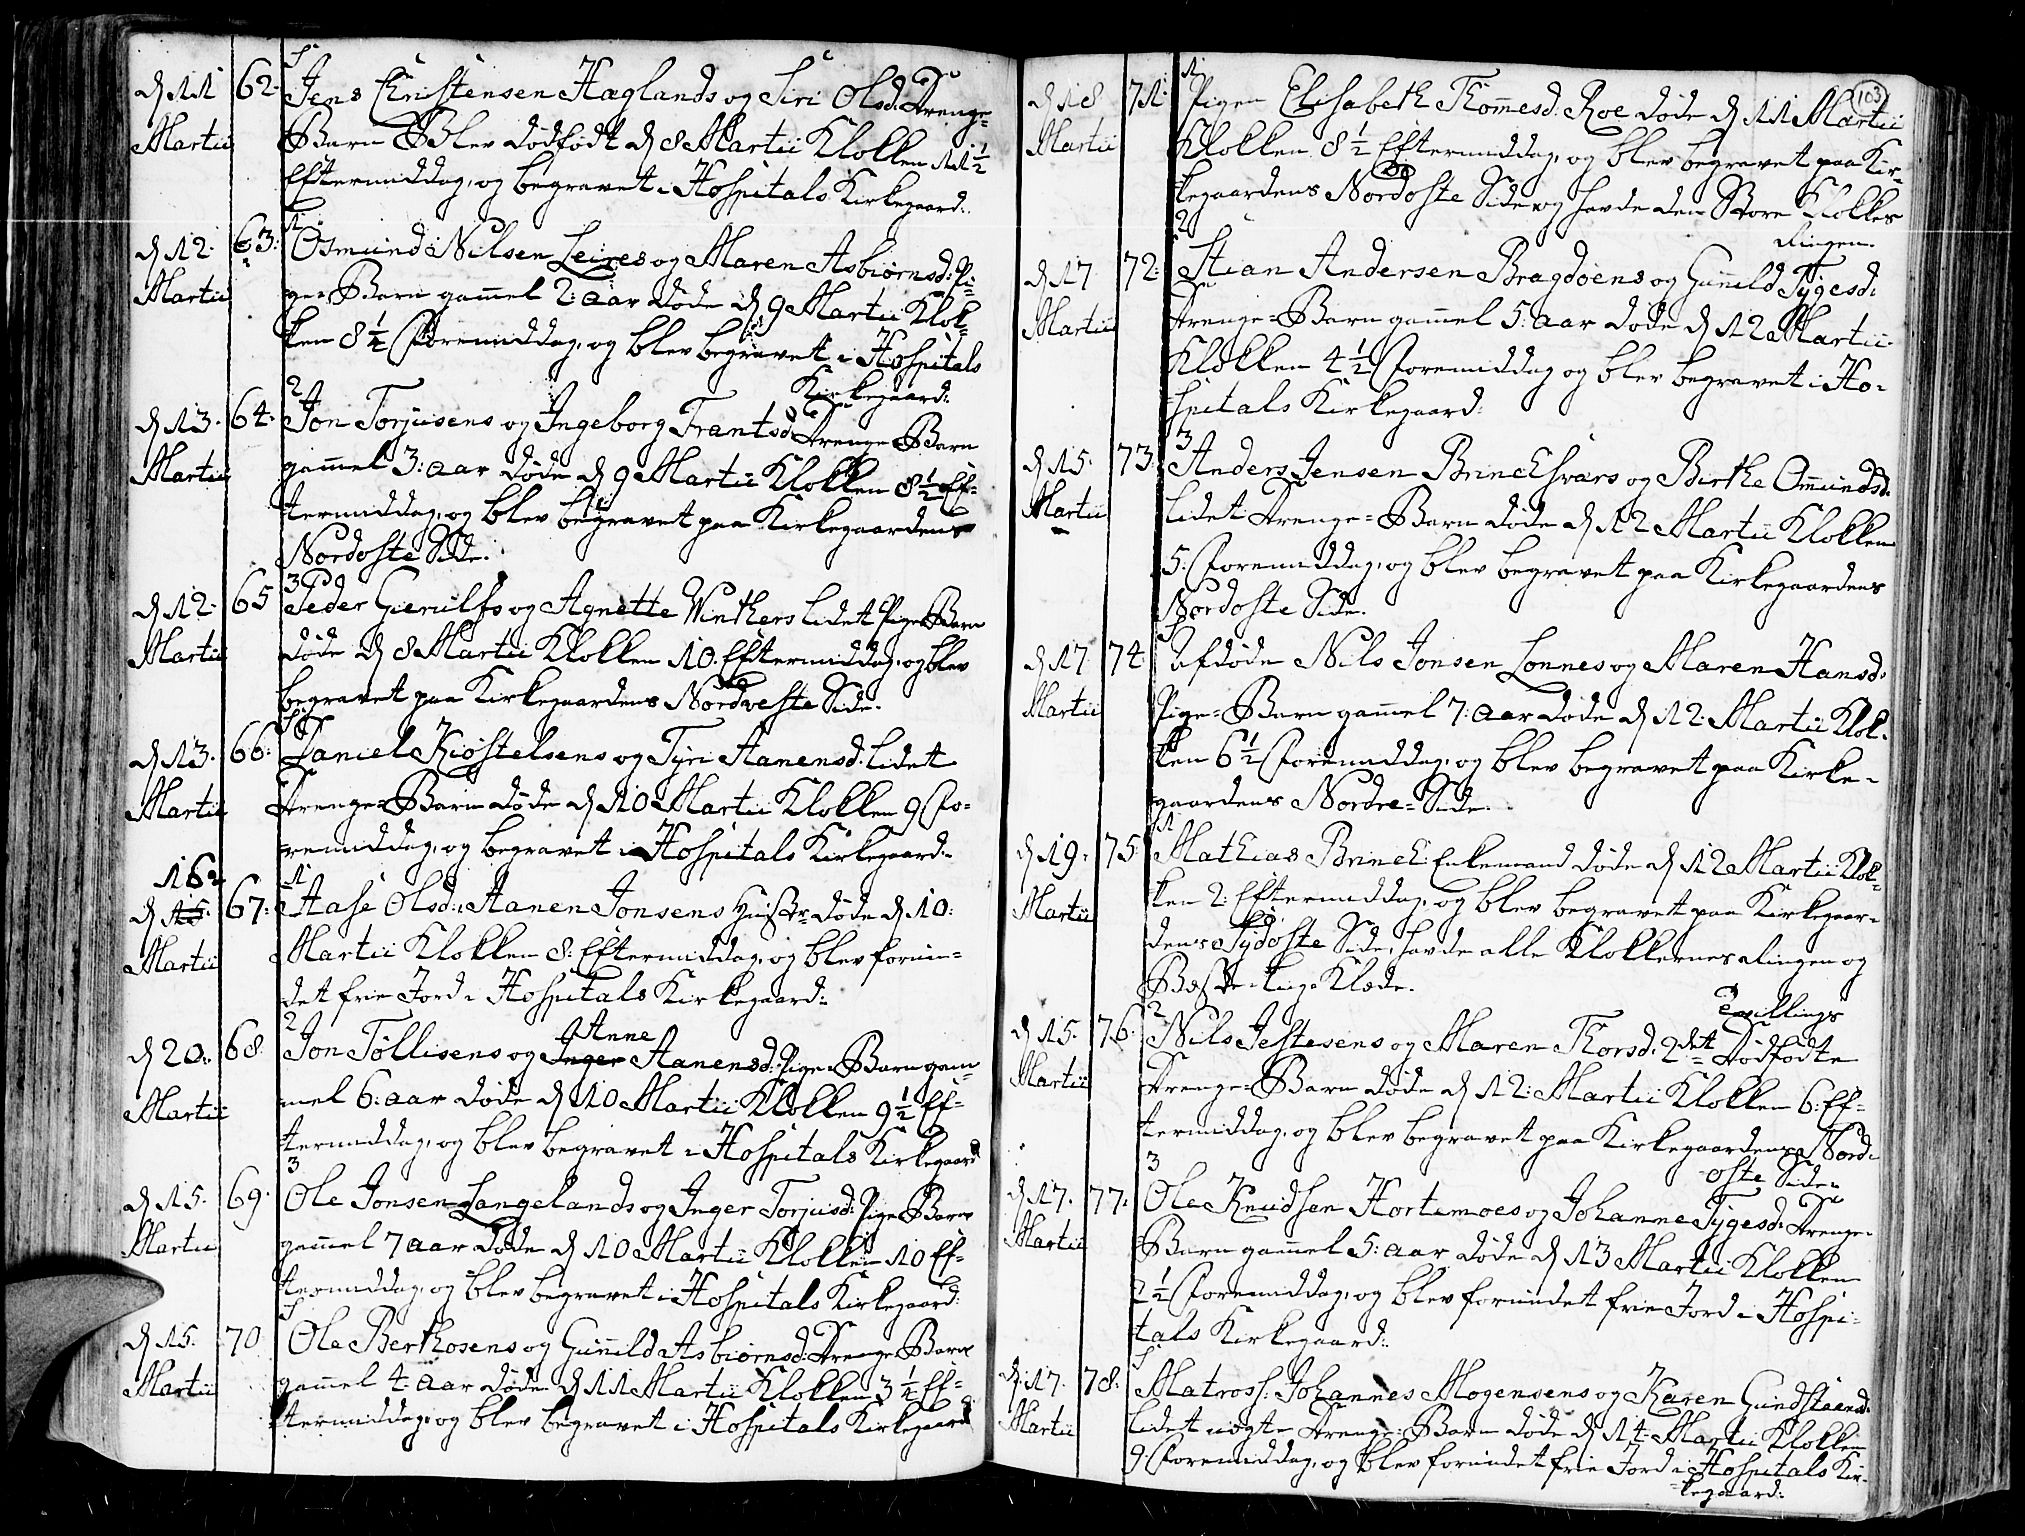 d 11 Martii 62. Jens Christensen Haglands og Siri Olsd: Drenge=
Barn Blev dødfødt d 8 Martii Klokken 11 1/2
Eftermiddag, og begravet i Hospitals Kirkegaard:
1
d 12. Martii 63: Osmund Nilsen Leires og Maren Asbiørnsd: Pi=
ge=Barn gammel 2: aar døde d 9 Martii Klok=
ken 8 1/4 Formiddag, og blev begravet i Hospitals
Kirkegaard:
2
d 13. Martii 64. Jon Torjusens og Ingeborg Frantsd: Drenge Barn
gammel 3: aar døde d 9 Martii Klokken 8 1/2 Ef=
termiddag, og blev begravet paa Kirkegaardens
Nordoste Side.
3
d 12. Martii 65 Peder Gierulfs og Agnette Winthers lidet Pige Barn
døde d 8 Martii Klokken 10. Eftermiddag, og blev
begravet paa Kirkegaardens Nordveste Side.
d 13. Martii 66: Daniel Kiøstelsens og Tyri Aanensd: lidet
Drenge=Barn døde d 10 Martii Klokken 9 Fo=
remiddag, og begravet i Hospitals Kirkegaard:
16.
1
d 15. Martii 67: Aase Olsd: Aanen Jonsens Hustr: døde d 10:
Martii Klokken 8: Eftermiddag, og blev forun=
det frie Jord i Hospitals Kirkegaard:
2
Anne
d 20. Martii 68 Jon Tøllisens og Inger Aanensd: Pige=Barn gam=
mel 6: aar døde d 10 Martii Klokken 9 1/2 Ef=
termiddag, og blev begravet i Hospitals Kirkegaard
3
d 15. Martii 69. Ole Jonsen Langelands og Inger Torjusd: Pige Barn
gammel 7 aar døde d 10 Martii Klokken 10 Ef=
termiddag, og blev begravet i Hospitals Kirkegaard:
d 15. Martii 70 Ole Berthosens og Gunnild Asbiørnsd: Drenge Barn
gammel 4: aar døde d 11 Martii Klokken 3 1/4 Ef=
termiddag, og blev begravet i Hospitals Kirkegaard
103
1
d 18 Martii 71. Pigen Elisabeth Thommesd: Roe døde d 11 Martii
Klokken 8 1/2 Eftermiddag, og blev begravet paa Kir=
kegaardens Nordoste Side og havde den Store Klokkes
Ringen.
2
d 17 Martii 72: Stian Andersen Bragdøens og Gunnild Tygesd:
Drenge=Barn gammel 5: aar døde d 12 Martii
Klokken 4 1/2 Formiddag og blev begravet i Ho=
spitals Kirkegaard:
3
d 15. Martii 73. Anders Jensen Brinchsværs og Birthe Omundsd:
lidet Drenge=Barn døde d 12 Martii Klokken
5. Formiddag, og blev begravet paa Kirkegaardens
Nordoste Side.
d 17 Martii 74. Afdøde Nils Jonsen Lonnes og Maren Hansd:
Pige=Barn gammel 7: aar døde d 12. Martii Klok=
ken 6 1/2 Formiddag, og blev begravet paa Kirke=
gaardens Nordre=Side.
1
d 19. Martii 75. Mathias Brinch: Enkemand døde d 12 Martii Klok=
ken 2: Eftermiddag, og blev begravet paa Kirkegaar=
dens Sydoste Side, havde alle Klokkernes Ringen og
Beste Liig Klæde.
2
Tvillings
d 15. Martii 76. Nils Jestesens og Maren Thorsd: 2det Dødfødte
Drenge=Barn døde d 12: Martii Klokken 6: Ef=
termiddag, og blev begravet paa Kirkegaardens Nord=
oste Side.
3
d 17. Martii 77. Ole Knudsen Hortemoes og Johanne Tygesd: Drenge=
Barn gammel 5: aar døde d 13 Martii Klokken
2 1/2 Formiddag, og blev forundet frie Jord i Hospi=
tals Kirkegaard:
d 17. Martii 78. Matros: Johannes Mogensens og Karen Gundstensd:
lidet uægte Drenge=Barn døde d 14. Martii Klokken
9 Formiddag, og blev forundet frie Jord i Hospitals Kir=
kegaard: